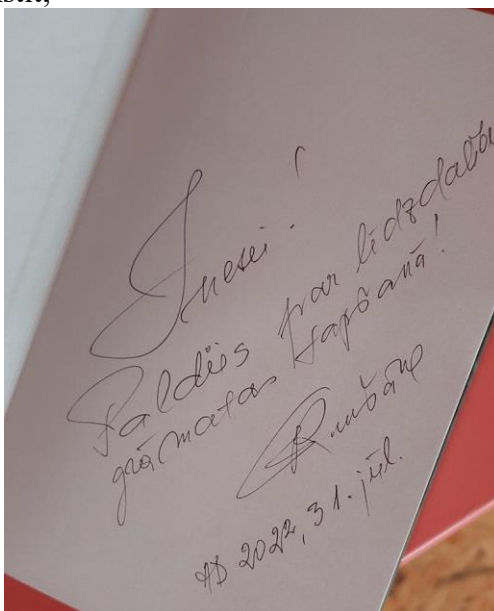 Inesei!
Paldies par līdzdalību
grāmatas tapšanā!
AD 2022, 31. jūl.